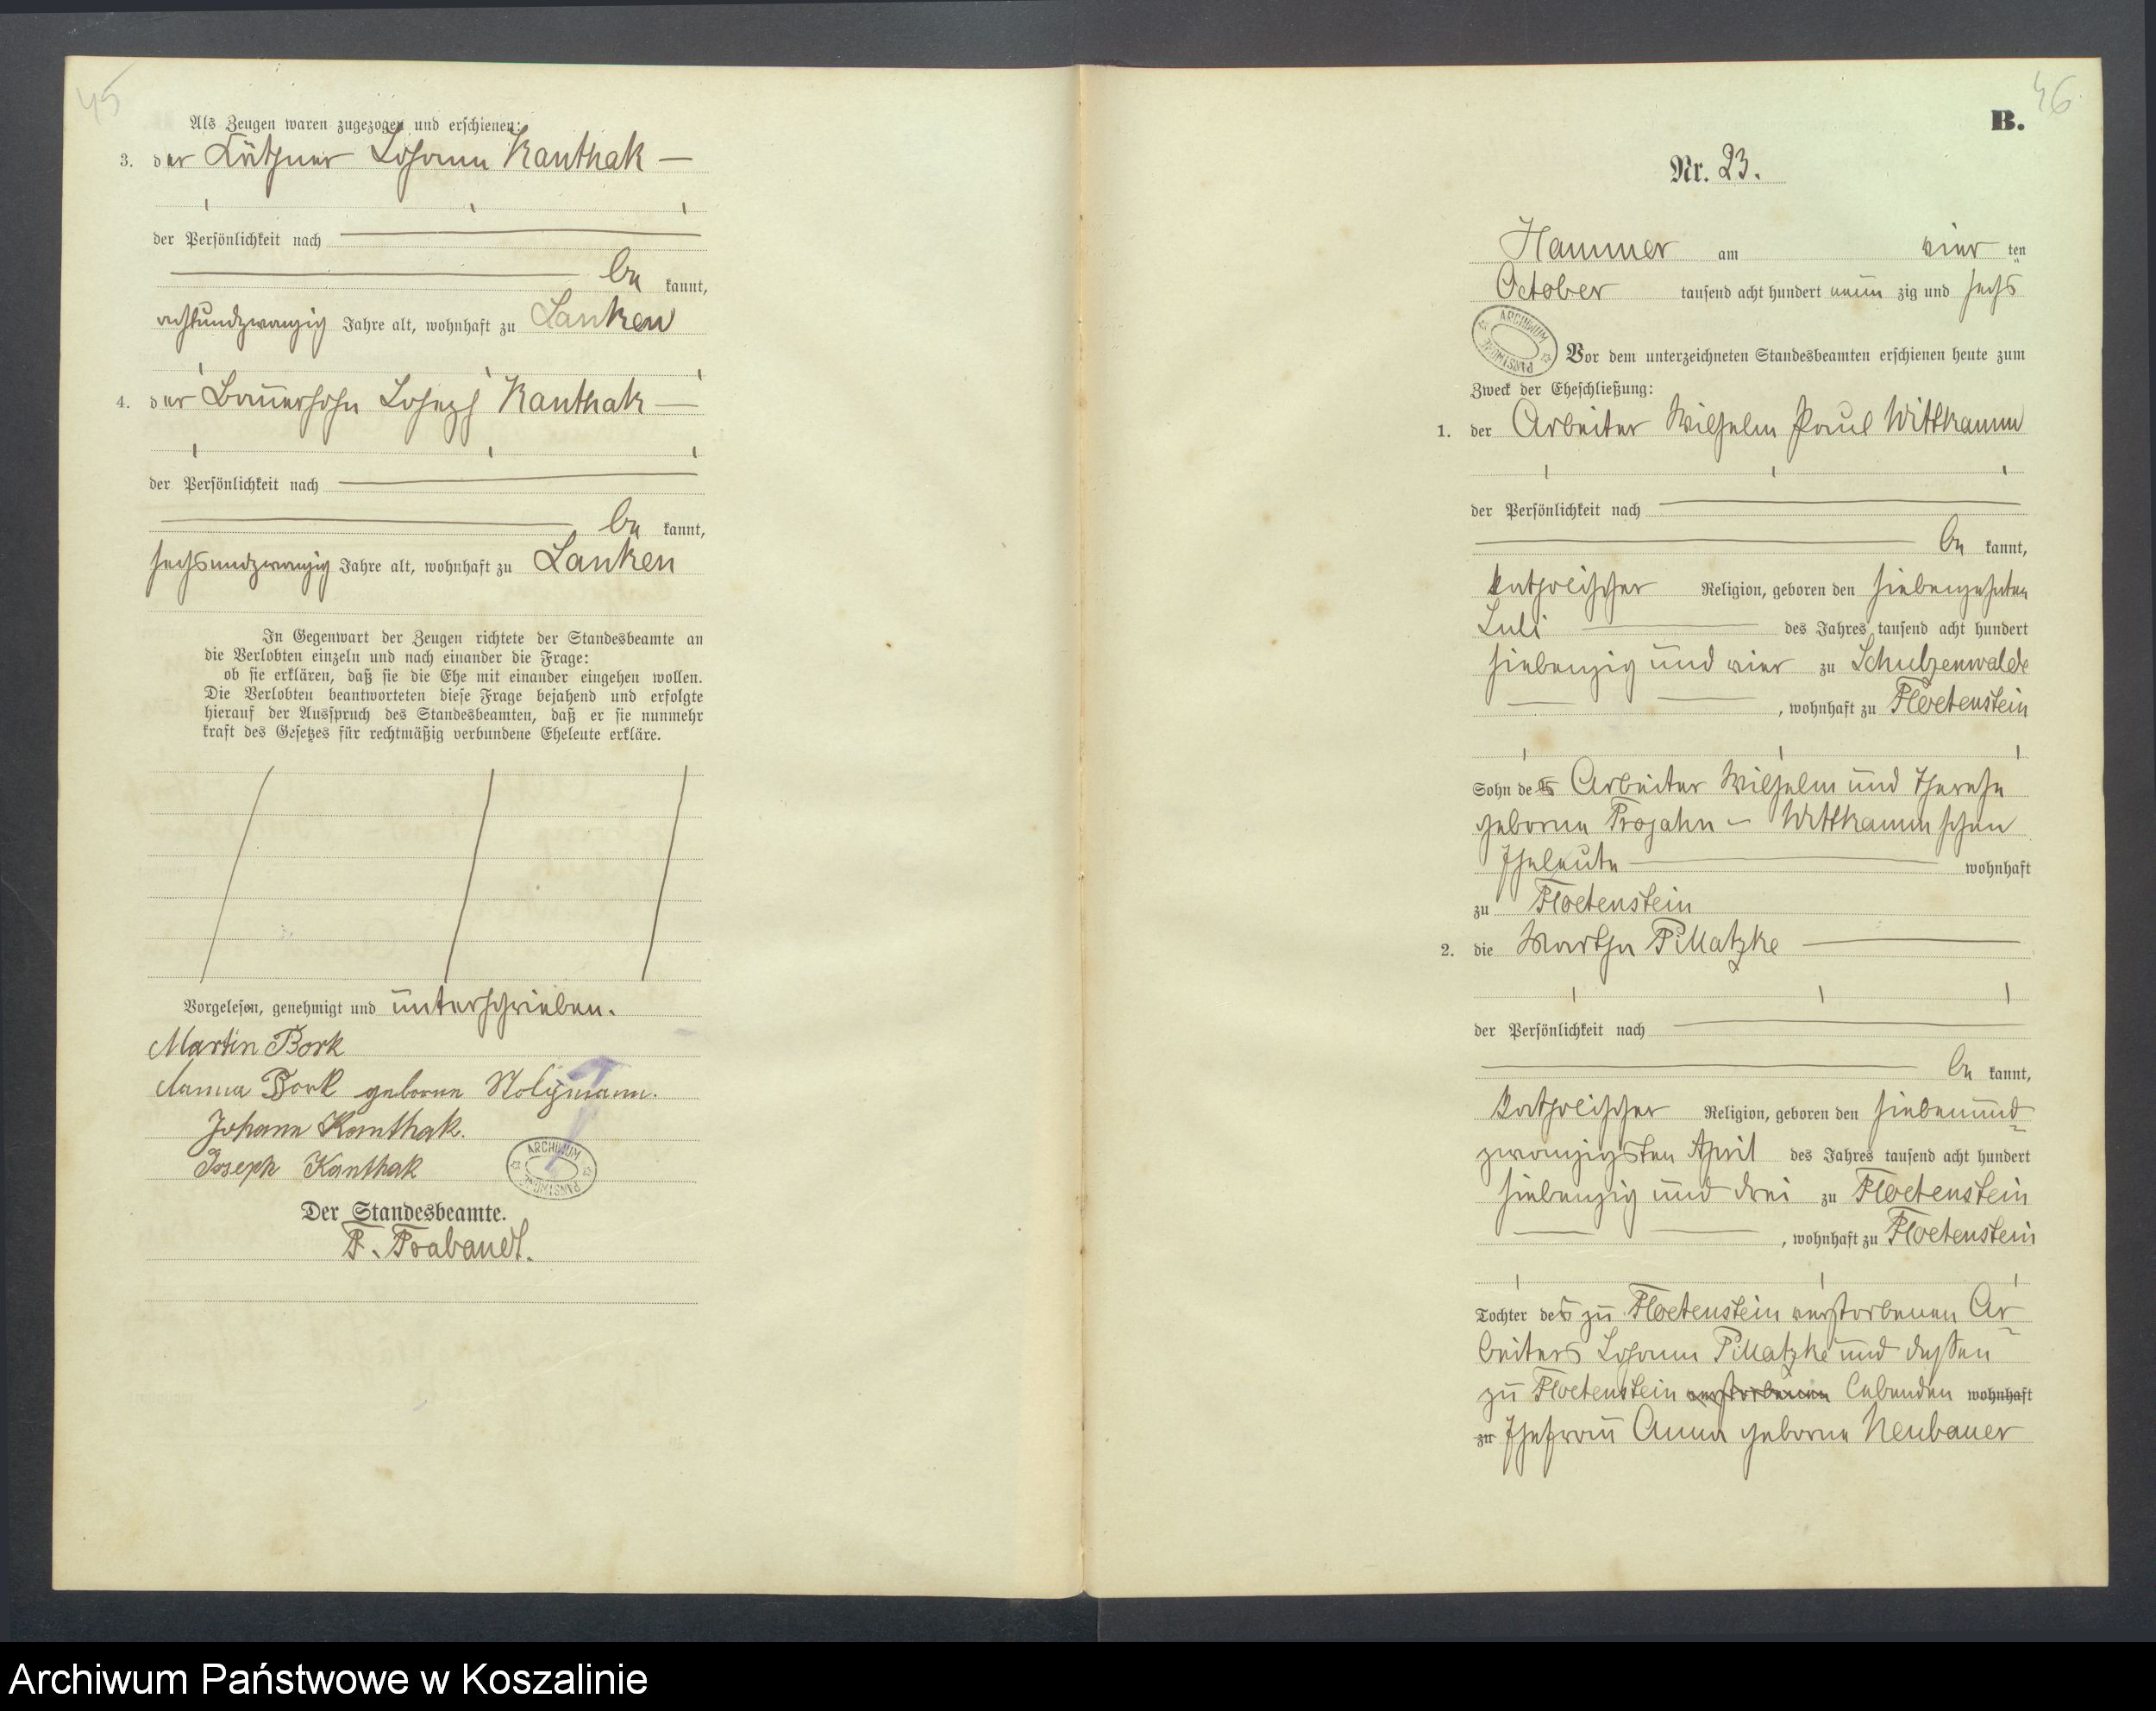 45
Als Zeugen waren zugezogen und erschienen:
3. der Käthner Johann Kanthak —
der Persönlichkeit nach
be kannt,
achtundzwanzig Jahre alt, wohnhaft zu Lanken
4. der Bauersohn Joseph Kanthak —
der Persönlichkeit nach
be kannt,
sechsundzwanzig Jahre alt, wohnhaft zu Lanken
In Gegenwart der Zeugen richtete der Standesbeamte an
die Verlobten einzeln und nach einander die Frage:
ob sie erklären, daß sie die Ehe mit einander eingehen wollen.
Die Verlobten beantworteten diese Frage bejahend und erfolgte
hierauf der Ausspruch des Standesbeamten, daß er sie nunmehr
kraft des Gesetzes für rechtmäßig verbundene Eheleute erkläre.
Vorgelesen, genehmigt und unterschrieben.
Martin Bork
Anna Bork geborne Stolzmann.
Johann Kanthak.
Joseph Kanthak
ARCHIWUM PAŃSTWOWE
Der Standesbeamte.
F. Trabandt.
46
B.
Nr. 23.
Hammer am vier ten
October tausend acht hundert neun zig und sechs
ARCHIWUM PAŃSTWOWE
Vor dem unterzeichneten Standesbeamten erschienen heute zum
Zweck der Eheschließung:
1. der Arbeiter Wilhelm Paul Wittkamm
der Persönlichkeit nach
be kannt,
katholischer Religion, geboren den siebenzehnten
Juli des Jahres tausend acht hundert
siebenzig und vier zu Schulzenwalde
, wohnhaft zu Floetenstein
Sohn der Arbeiter Wilhelm und Therese
geborne Projahn – Wittkamm schen
Eheleute wohnhaft
zu Floetenstein
2. die Martha Pillatzke
der Persönlichkeit nach
be kannt,
katholischer Religion, geboren den siebenund-
zwanzigsten April des Jahres tausend acht hundert
siebenzig und drei zu Floetenstein
, wohnhaft zu Floetenstein
Tochter des zu Floetenstein verstorbenen Ar-
beiters Johann Pillatzke und dessen
zu Floetenstein verstorbenen lebenden wohnhaft
zu Ehefrau Anna geborne Neubauer
Archiwum Państwowe w Koszalinie